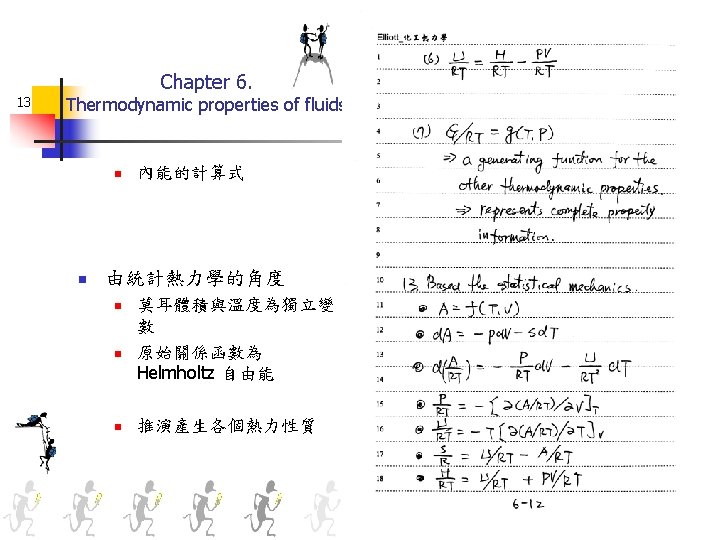 Chapter 6.
13
Thermodynamic properties of fluids
內能的計算式
由統計熱力學的角度
莫耳體積與溫度為獨立變
數
原始關係函數為
Helmholtz 自由能
推演產生各個熱力性質
Elliott_化工熱力學
1 (6) U/RT = H/RT - PV/RT
2
3
4 (7) G/RT = g(T, P)
5 ⇒ a generating function for the
6 other thermodynamic properties.
7 ⇒ represents complete property
8 information.
9
10 13. Based the statistical mechanics.
11 ① A = f(T, V)
12 ② dA = -pdV - SdT
13 ③ d(A/RT) = - P/RT dV - U/RT² dT
14
15 ④ P/RT = -[∂(A/RT)/∂V]T
16 ⑤ U/RT = -T[∂(A/RT)/∂T]V
17 ⑥ S/R = U/RT - A/RT
18 ⑦ H/RT = U/RT + PV/RT
6-12